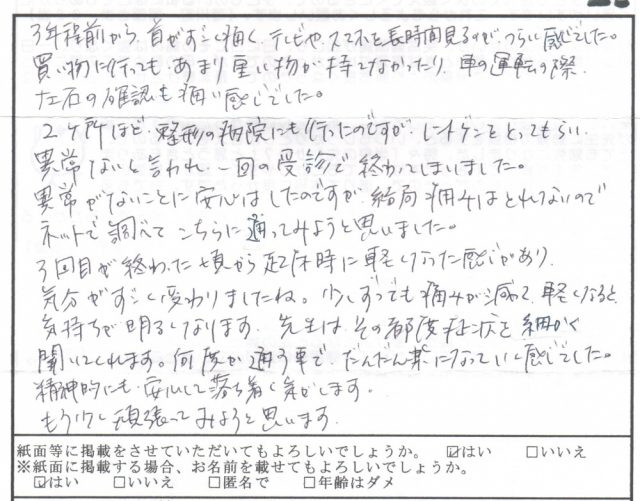 3年程前から、首がすごく痛く、テレビや、スマホを長時間見るのが、つらい感じでした。
買い物に行っても、あまり重い物が持てなかったり、車の運転の際、
左右の確認も痛い感じでした。
2ヶ所ほど、整形の病院にも行ったのですが、レントゲンをとってもらい、
異常ないと言われ、一回の受診で終わってしまいました。
異常がないことに安心はしたのですが、結局痛みはとれないので
ネットで調べて こちらに通ってみようと思いました。
3回目が終わった頃から 起床時に軽くなった感じがあり、
気分がすごく変わりましたね。少しずつでも痛みが減って、軽くなると
気持ちが明るくなります。先生は、その都度症状を細かく
聞いてくれます。何度か通う事で、だんだん楽になっていく感じでした。
精神的にも、安心して落ち着く気がします。
もう少し頑張ってみようと思います。
紙面等に掲載をさせていただいてもよろしいでしょうか。 ☑はい □いいえ
※紙面に掲載する場合、お名前を載せてもよろしいでしょうか。
☑はい □いいえ □匿名で □年齢はダメ